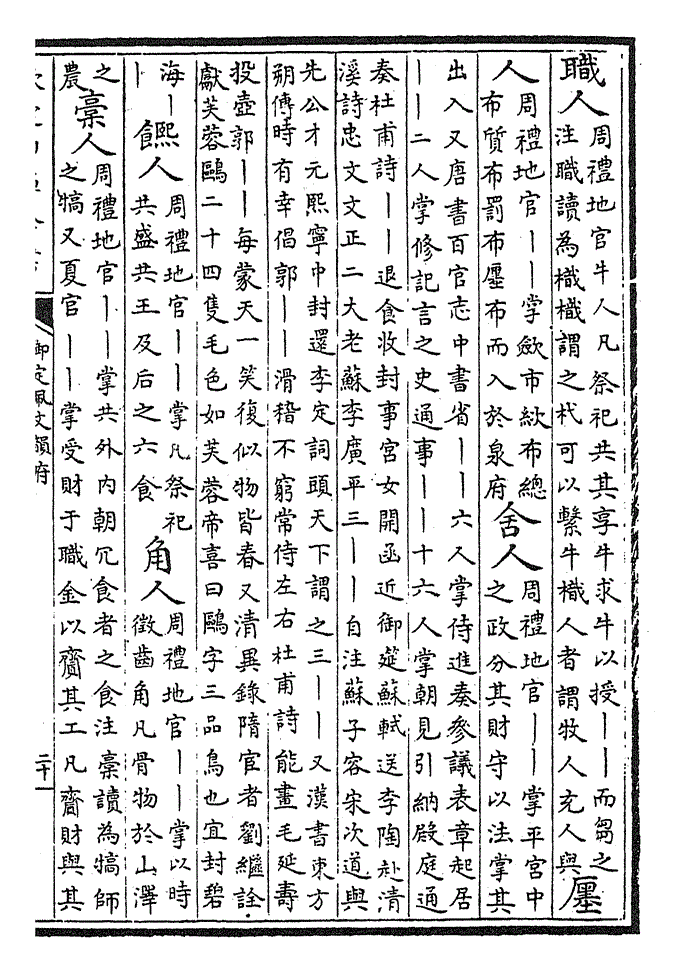 職人 周禮地官牛人凡祭祀共其享牛求牛以授｜｜而芻之
注職讀為樴樴謂之杙可以繫牛樴人者謂牧人充人與 廛
人 周禮地官｜｜掌斂市絘布總
布質布罰布廛布而入於泉府 舍人 周禮地官｜｜掌平宮中
之政分其財守以法掌其
出入又唐書百官志中書省｜｜六人掌侍進奏參議表章起居
｜｜二人掌修記言之史通事｜｜十六人掌朝見引納殿庭通
奏杜甫詩｜｜退食收封事宮女開函近御筵蘇軾送李陶赴清
溪詩忠文文正二大老蘇李廣平三｜｜自注蘇子容宋次道與
先公才元熙寧中封還李定詞頭天下謂之三｜｜又漢書東方
朔傳時有幸倡郭｜｜滑稽不窮常侍左右杜甫詩能畫毛延壽
投壺郭｜｜每蒙天一笑復似物皆春又清異錄隋宦者劉繼詮
獻芙蓉鷗二十四隻毛色如芙蓉帝喜曰鷗字三品鳥也宜封碧
海｜
｜ 饎人 周禮地官｜｜掌凡祭祀
共盛共王及后之六食 角人 周禮地官｜｜掌以時
徵齒角凡骨物於山澤
之
農 稾人 周禮地官｜｜掌共外內朝冗食者之食注稾讀為犒師
之犒又夏官｜｜掌受財于職金以齎其工凡齎財與其
御定佩文韻府
二十